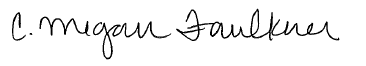 C. Megan Faulkner